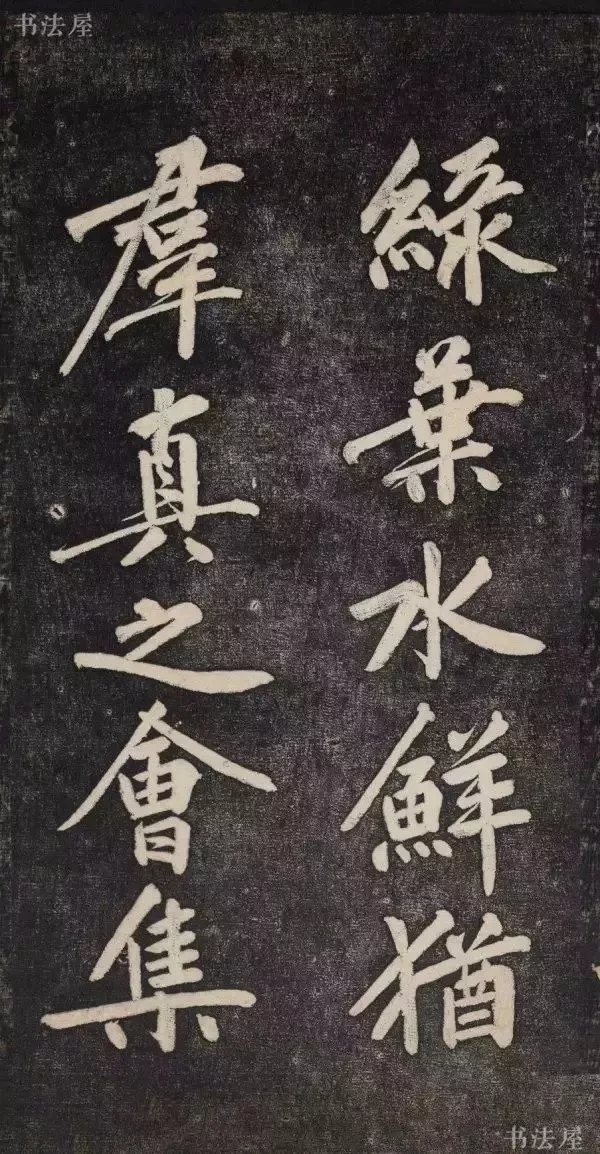 书法屋
綠葉水鮮猶
羣真之會集
书法屋